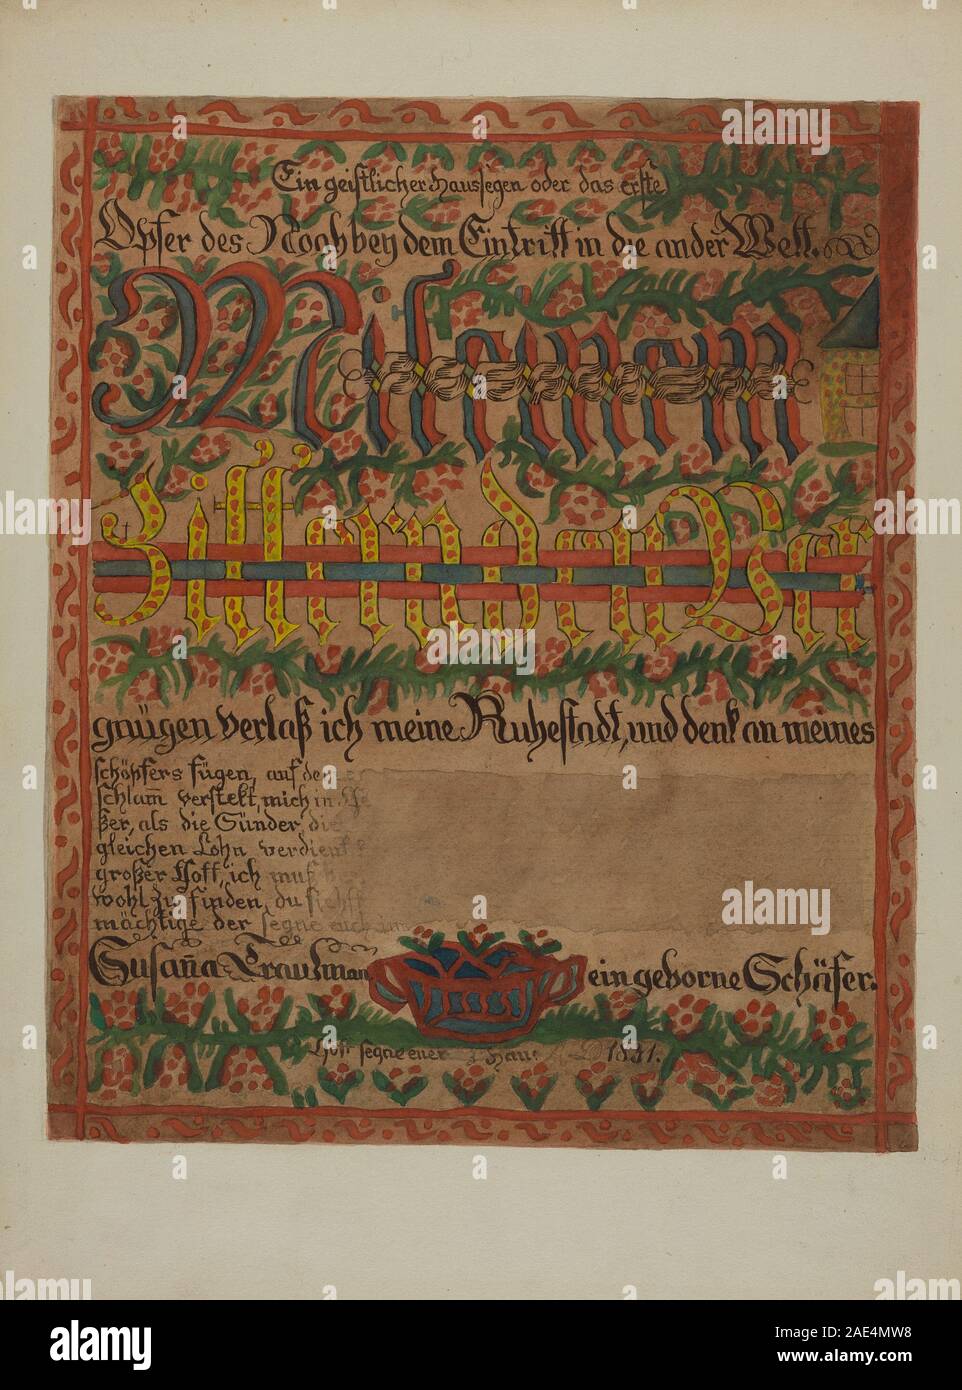 Ein geistlicher Haussegen oder das erste
Opfer des Noah bey dem Eintritt in die ander Welt.
Mit einem
Zitternden Ver
gnügen verlaß ich meine Ruhestadt, und denk an meines
schöpfers fügen, auf de
schlam̄ verstekt, mich in
ßer, als die Sünder, die
gleichen Lohn verdient
großer Gott, ich muß
wohl zu finden, du siehst
mächtige der segne euch im
Susan̄a Trautman ein geborne Schäfer.
Gott segne euer Haus A D 1831.
alamy
Image ID: 2AE4MW8
www.alamy.com